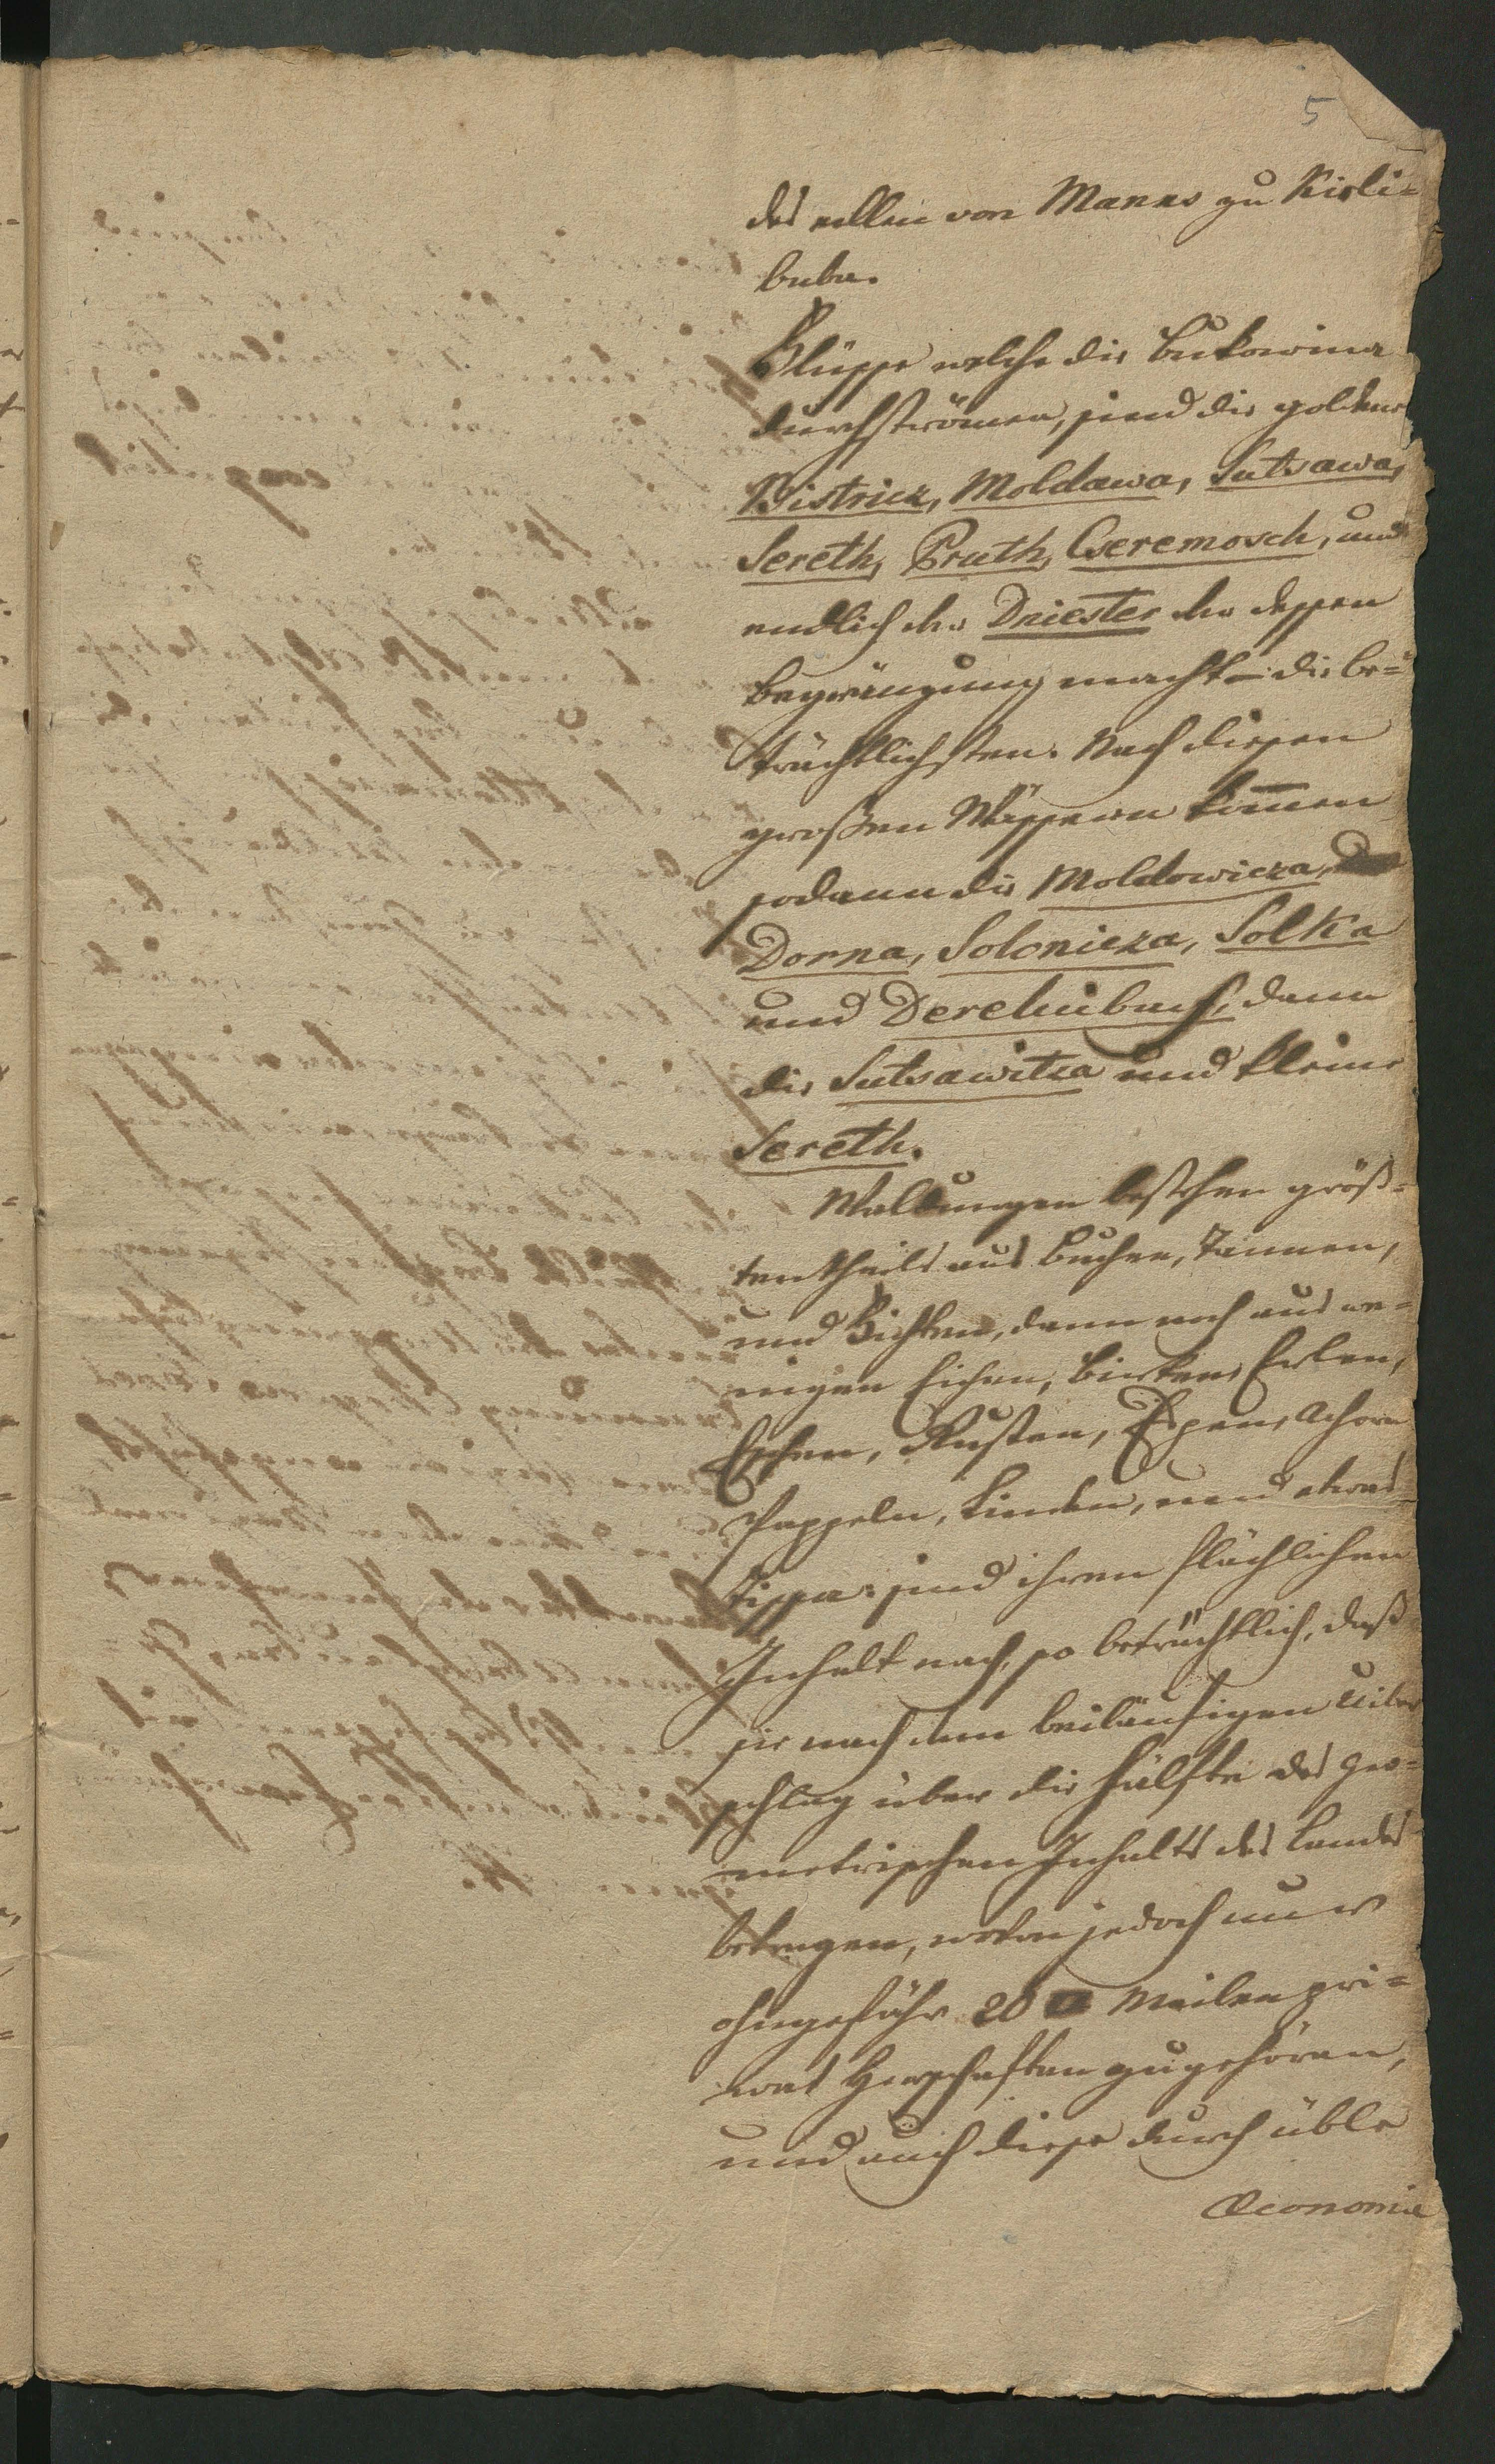 5
des edlen von Manns zu Kirli-
baba.
Flüsse welche die Bukowina
durchströmen, sind die goldene
Bistricz, Moldawa, Sutsawa,
Sereth, Pruth, Czeremosch, und
endlich der Driester der dessen
begränzung macht – die be-
trächtlichsten. Nach diesen
großen Wässern kom̅en
sodann die Moldowicza,
Dorna, Solonicza, Solka
und Derehuibach, dann
die Sutsawitza und kleine
Sereth.
Waldungen bestehen größ-
tentheils aus Buchen, Tannen,
und Fichten, dann noch aus we-
nigen Eichen, Birken, Erlen,
Eschen, Rusten, Espen, Ahorn
Pappeln, Linden, und etwas
sind ihren flächlichen
Inhalt nach, so beträchtlich, daß
sie nach dem beiläufigen Uiber
schlag über die Hälfte des Geo-
metrischen Inhalts des Landes
betragen, wovon jedoch nur
ohngefähr 20 □ Meilen pri-
vat Herschaften zugehören,
und auch diese durch üble
Oeconomie